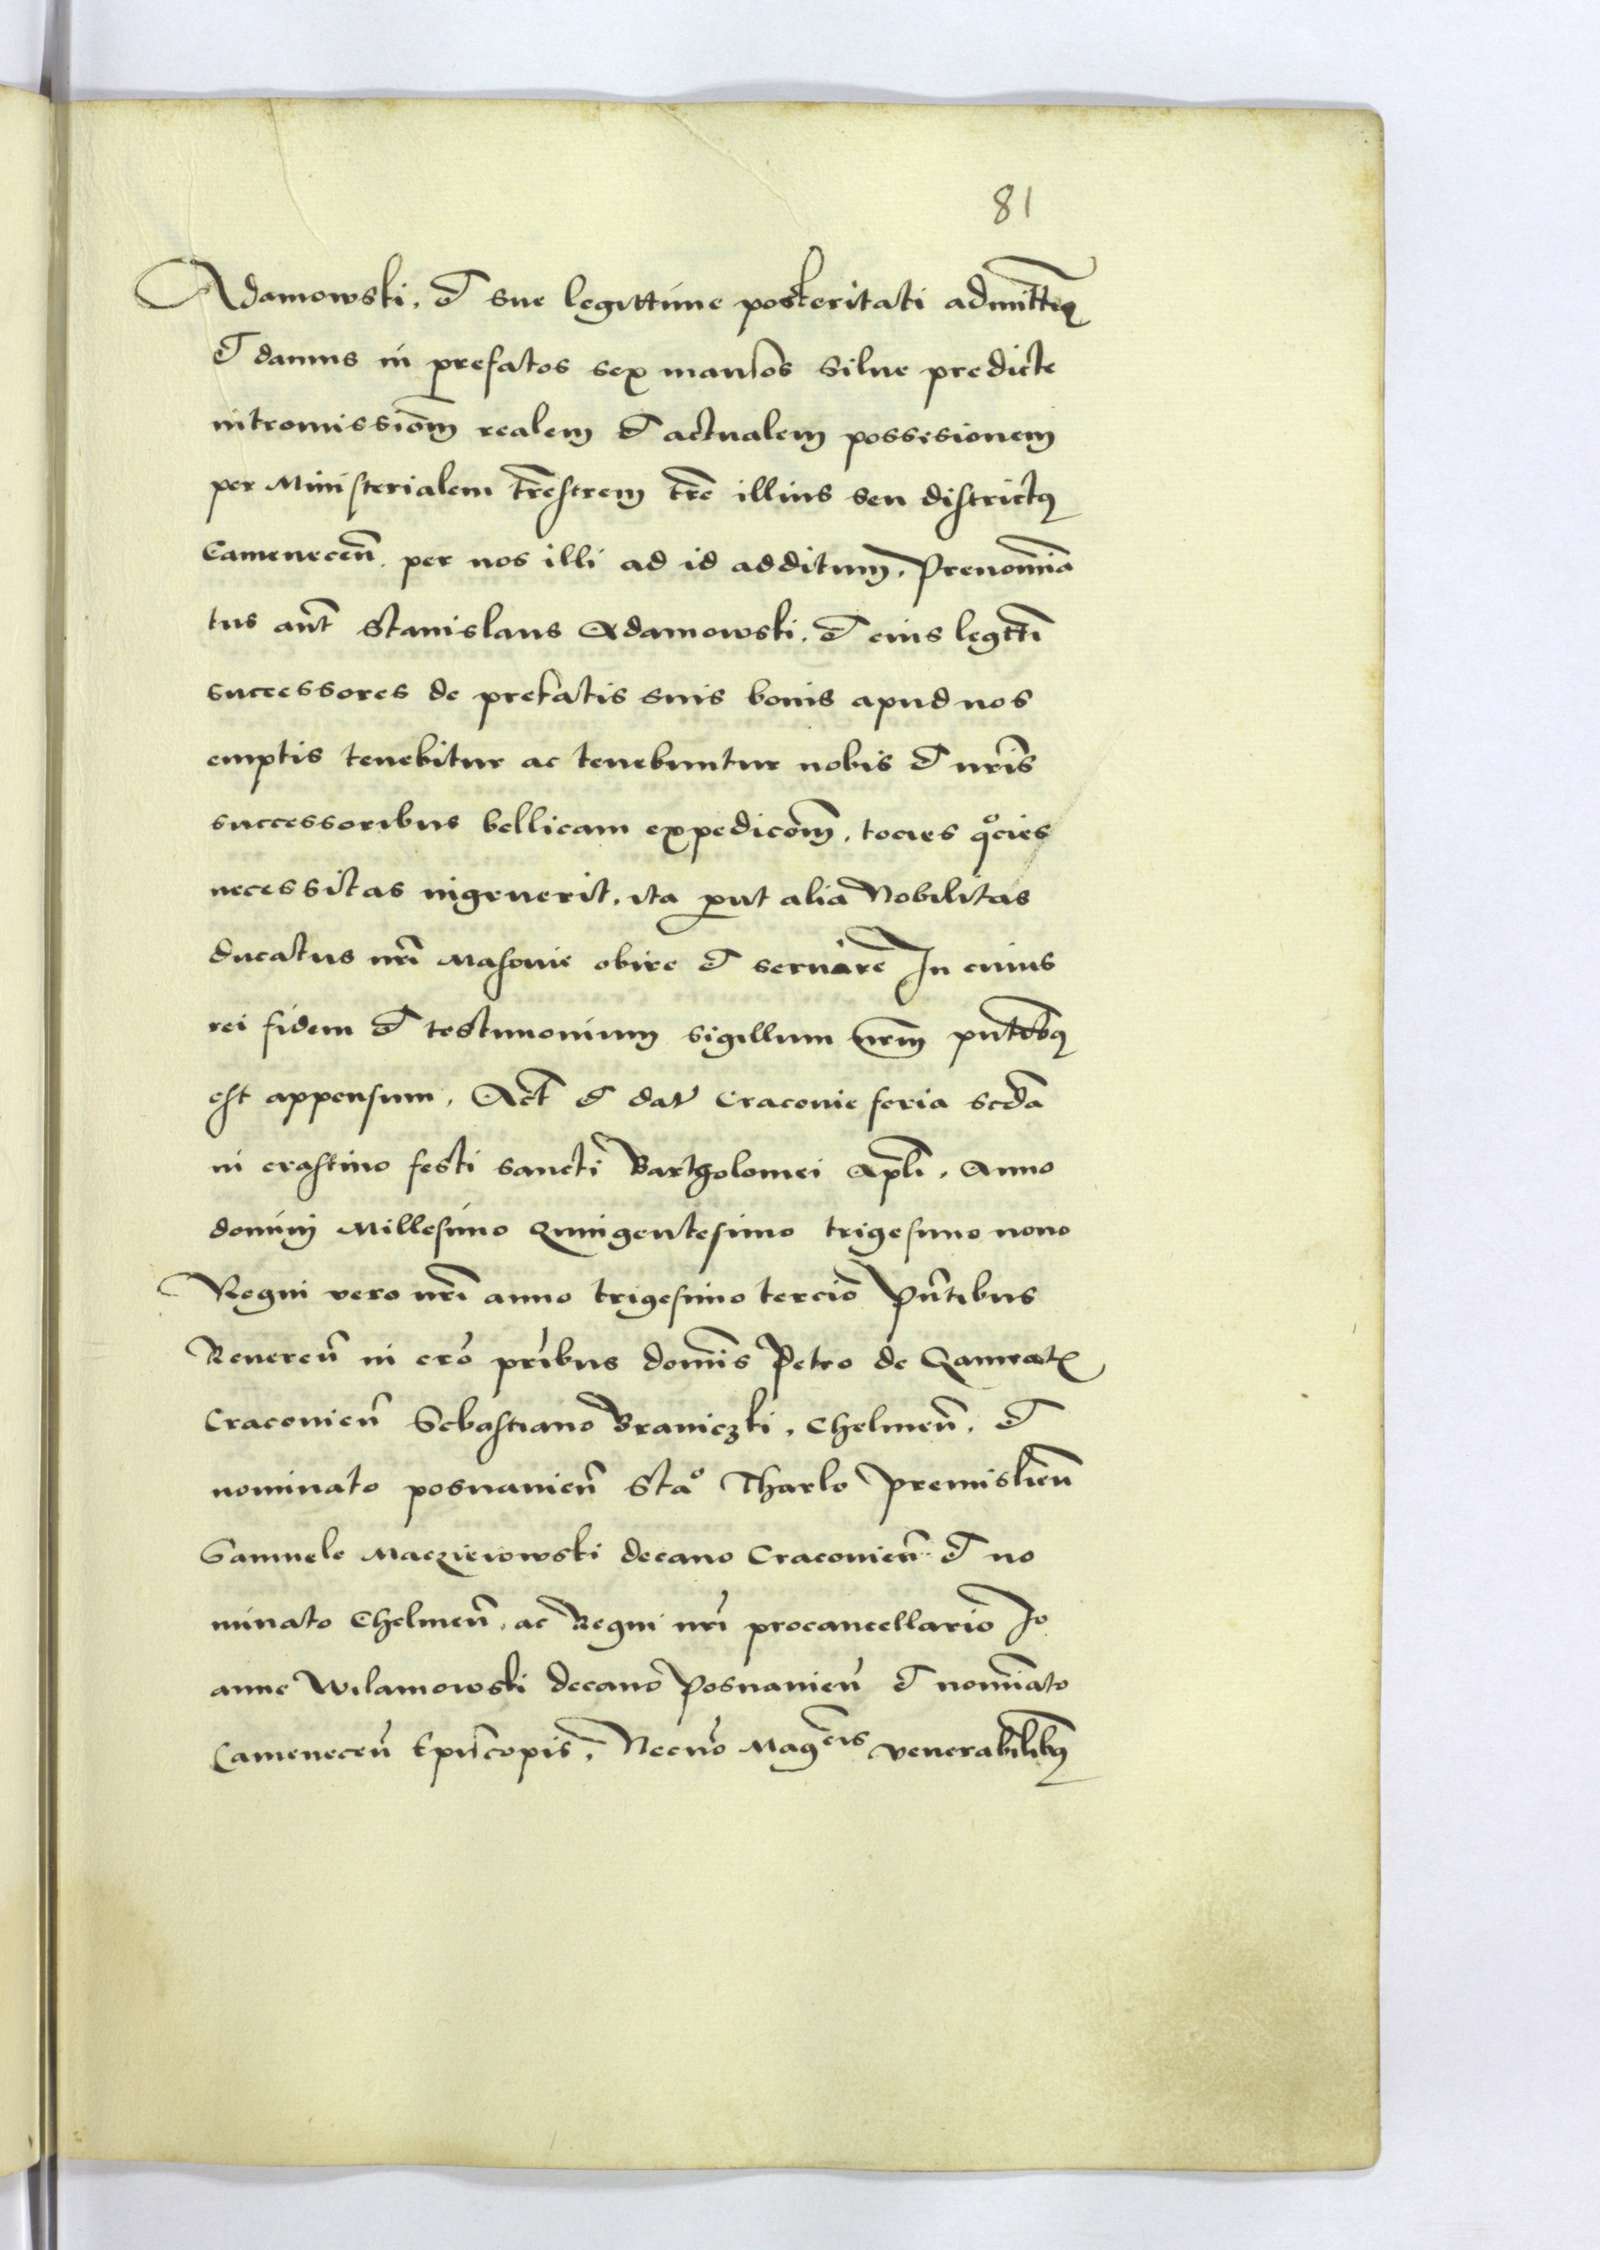 81
Adamowski. et sue legittime posteritati admittim9
et damus in prefatos sex mansos Silue predicte
intromissiōm realem et actualem possesionem
per Ministerialem tr̄estrem tr̄e illius seu districtus
Camenecen̄. per nos illi ad id additum. Prenomīa
tus aūt Stanislaus Adamowski. et eius legttī
successores de prefatis suis bonis apud nos
emptis tenebitur ac tenebuntur nobis et nr̄is
successoribus bellicam expedicōm. tocies qͦcies
necessitas ingruerit. ita put alia Nobilitas
ducatus nr̄i Masouie obire et seruire In cuius
rei fidem et testimonium sigillum nr̄m pn̄tibus
est appensum. Act̄ et dat̄ Cracouie feria scd̄a
in crastino festi sancti Bartholomei apl̄i. Anno
domini Millesimo Quingentesimo trigesimo nono
Regni vero nr̄i anno trigesimo tercio Pn̄tibus
Reueren̄ in cr̄o pr̄ibus domīs Petro de Gamrat
Cracouien̄ Sebastiano Braniczki. Chelmen̄. et
nominato posnanien̄ Staͦ Tharlo Premislien̄
Samuele Maczieiowski decano Cracouien̄ et no
minato Chelmen̄. ac Regni nr̄i procancellario Io
anne Wilamowski decano Posnanien̄ et nomīato
Camenecen̄ Ep̄iscopis. Necnō Magcis venerabilibus